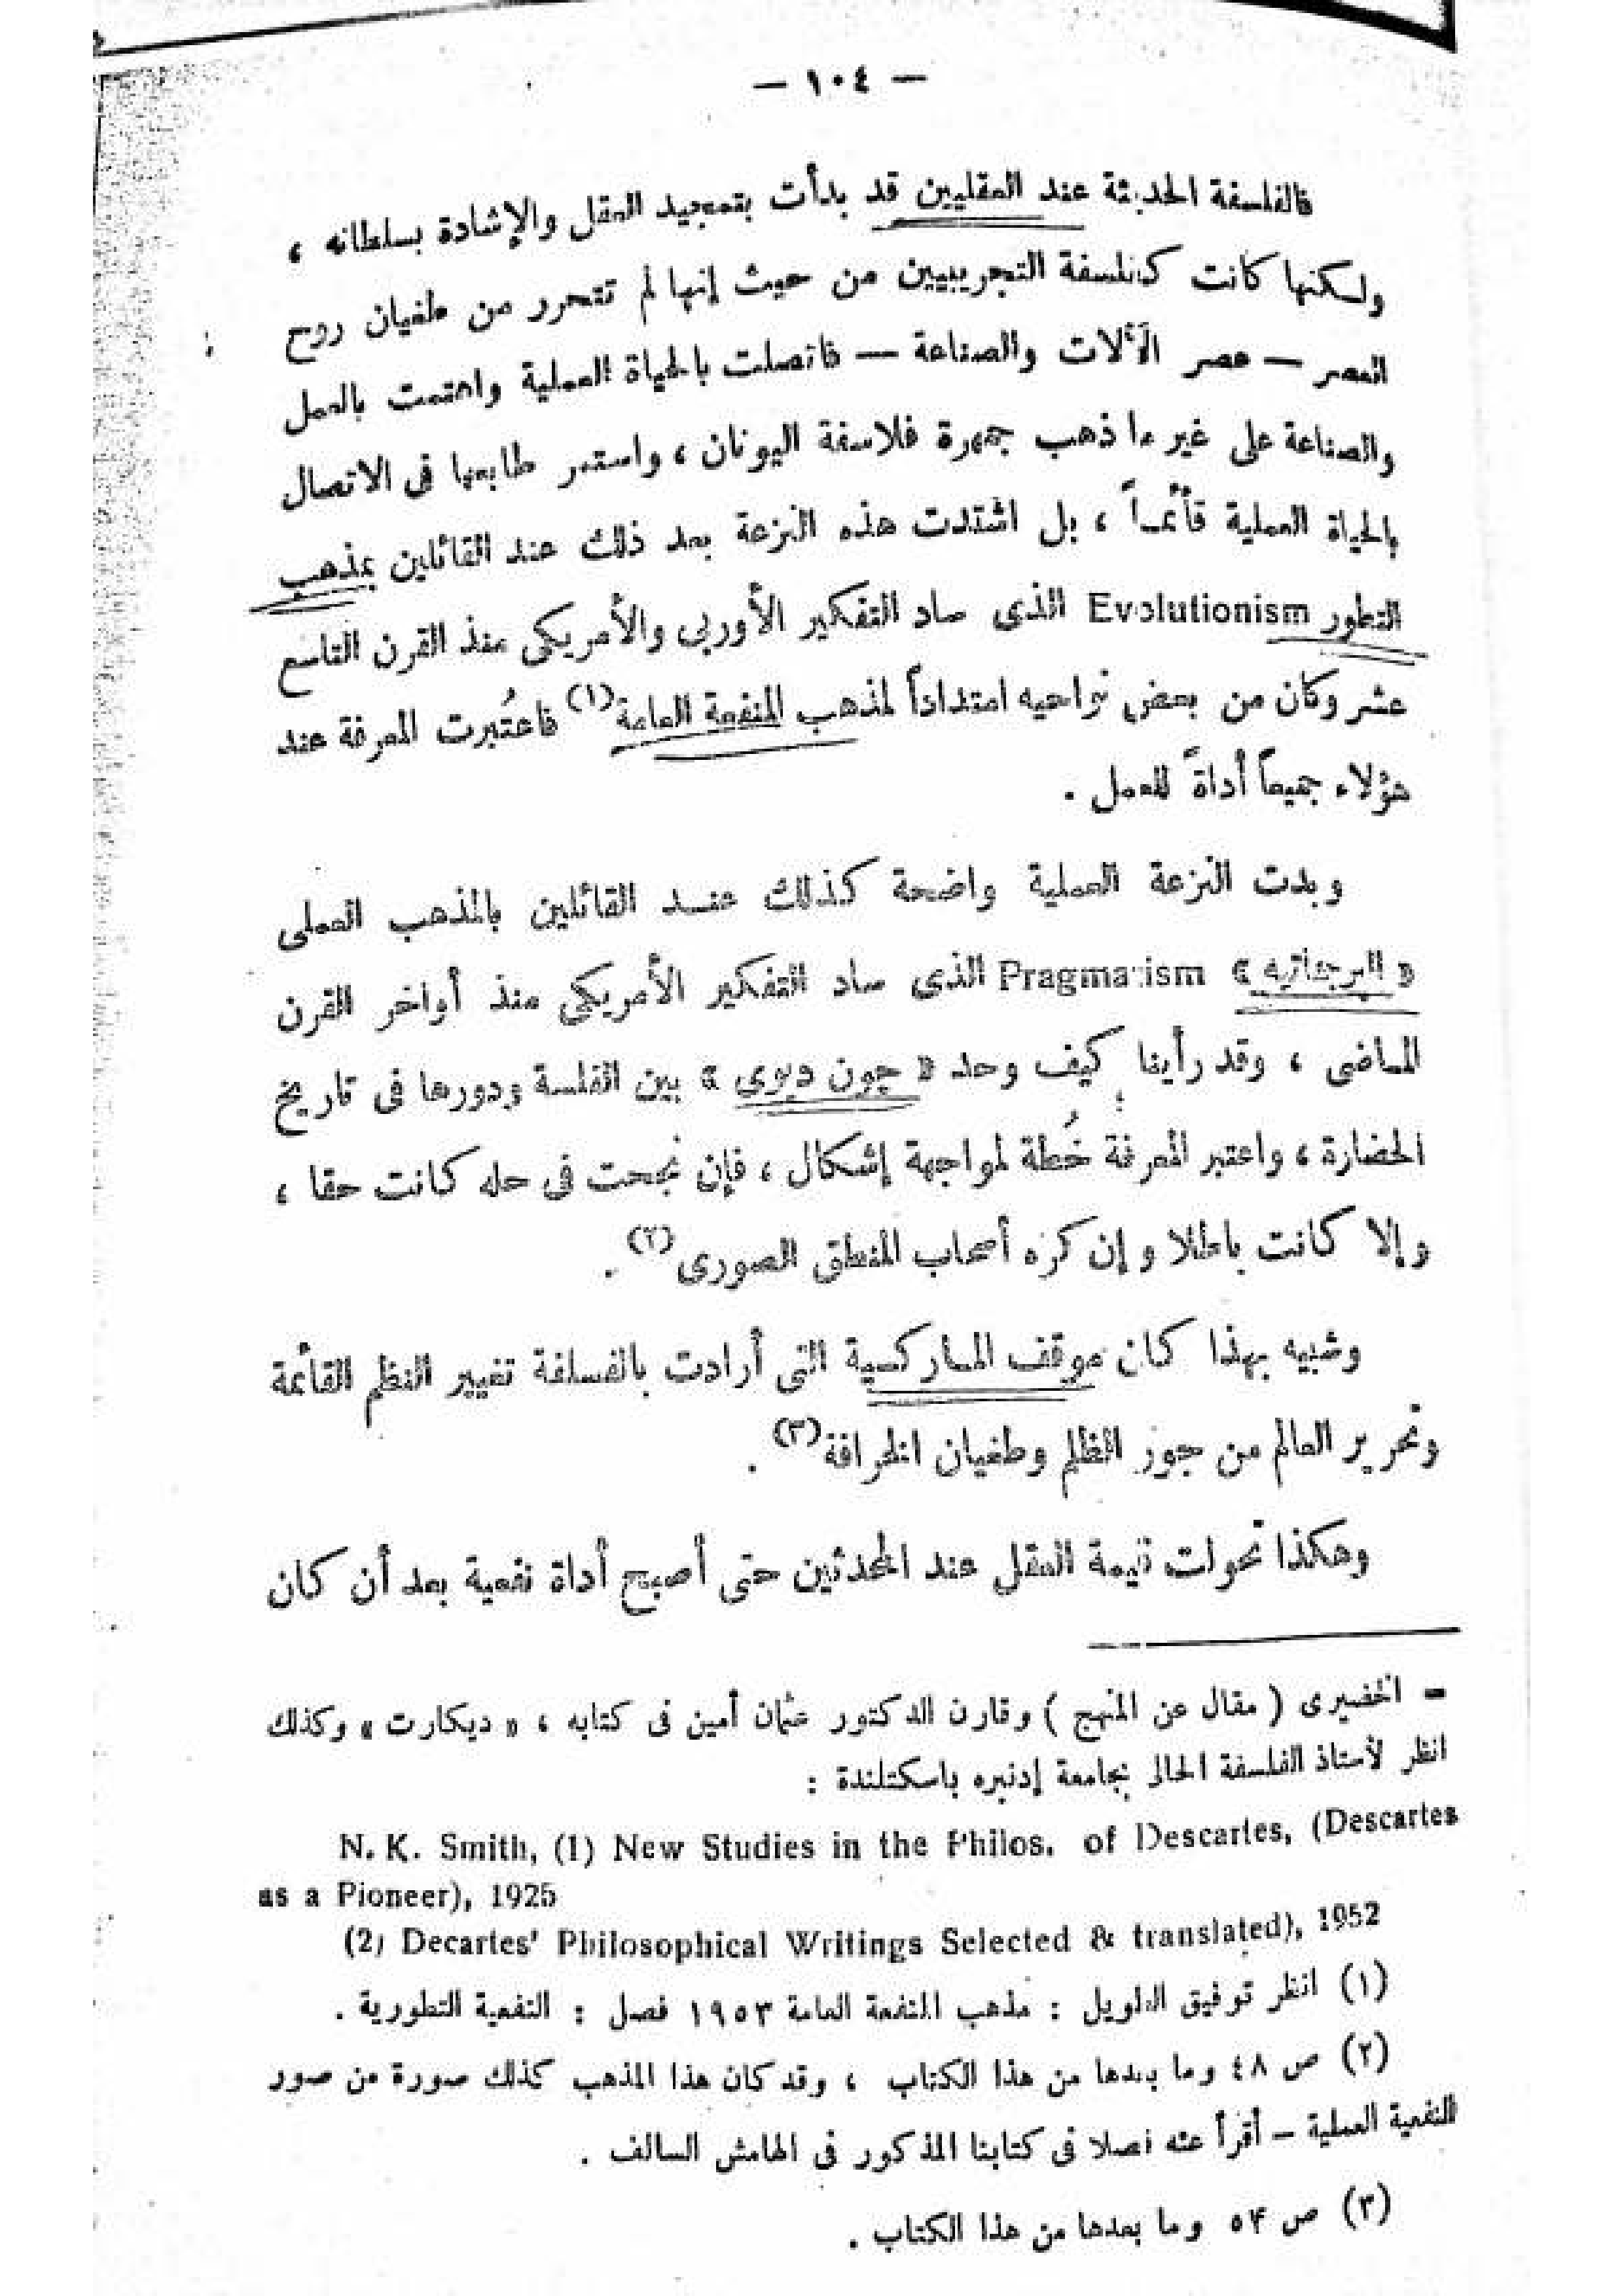 — ١٠٤ —
فالفلسفة الحديثة عند العقليين قد بدأت بتمجيد العقل والإشادة بسلطانه ،
ولكنها كانت كفلسفة التجريبيين من حيث إنها لم تتحرر من طغيان روح
العصر — عصر الآلات والصناعة — فاتصلت بالحياة العملية واهتمت بالعمل
والصناعة على غير ما ذهب جمهرة فلاسفة اليونان ، واستمر طابعها فى الاتصال
بالحياة العملية قائماً ، بل اشتدت هذه النزعة بعد ذلك عند القائلين بمذهب
التطور Evolutionism الذى ساد التفكير الأوربى والأمريكى منذ القرن التاسع
عشر وكان من بعض نواحيه امتداداً لمذهب المنفعة العامة (١) فاعتُبرت المعرفة عند
هؤلاء جميعاً أداةً للعمل .
وبدت النزعة العملية واضحة كذلك عند القائلين بالمذهب العملى
« البرجماتيه » Pragmatism الذى ساد التفكير الأمريكى منذ أواخر القرن
الماضى ، وقد رأينا كيف وحد « جون ديوى » بين الفلسة ودورها فى تاريخ
الحضارة ، واعتبر المعرفة خُطة لمواجهة إشكال ، فإن نجحت فى حله كانت حقا ،
وإلا كانت باطلا وإن كره أصحاب المنطق الصورى (٢) .
وشبيه بهذا كان موقف الماركسية التى أرادت بالفسلفة تغيير النظم القائمة
وتحرير العالم من جور الظلم وطغيان الخرافة (٣) .
وهكذا تحولت قيمة العقل عند المحدثين حتى أصبح أداة نفعية بعد أن كان
= الخضيرى ( مقال عن المنهج ) وقارن الدكتور عثمان أمين فى كتابه ، « ديكارت » وكذلك
انظر لأستاذ الفلسفة الحالى بجامعة إدنبره باسكتلندة :
N. K. Smith, (1) New Studies in the Philos. of Descartes, (Descartes
as a Pioneer), 1925
(2) Decartes' Philosophical Writings Selected & translated), 1952
(١) انظر توفيق الطويل : مذهب المنفعة العامة ١٩٥٣ فصل : النفعية التطورية .
(٢) ص ٤٨ وما بعدها من هذا الكتاب ، وقد كان هذا المذهب كذلك صورة من صور
النفعية العملية – أقرأ عنه فصلا فى كتابنا المذكور فى الهامش السالف .
(٣) ص ٥٤ وما بعدها من هذا الكتاب .